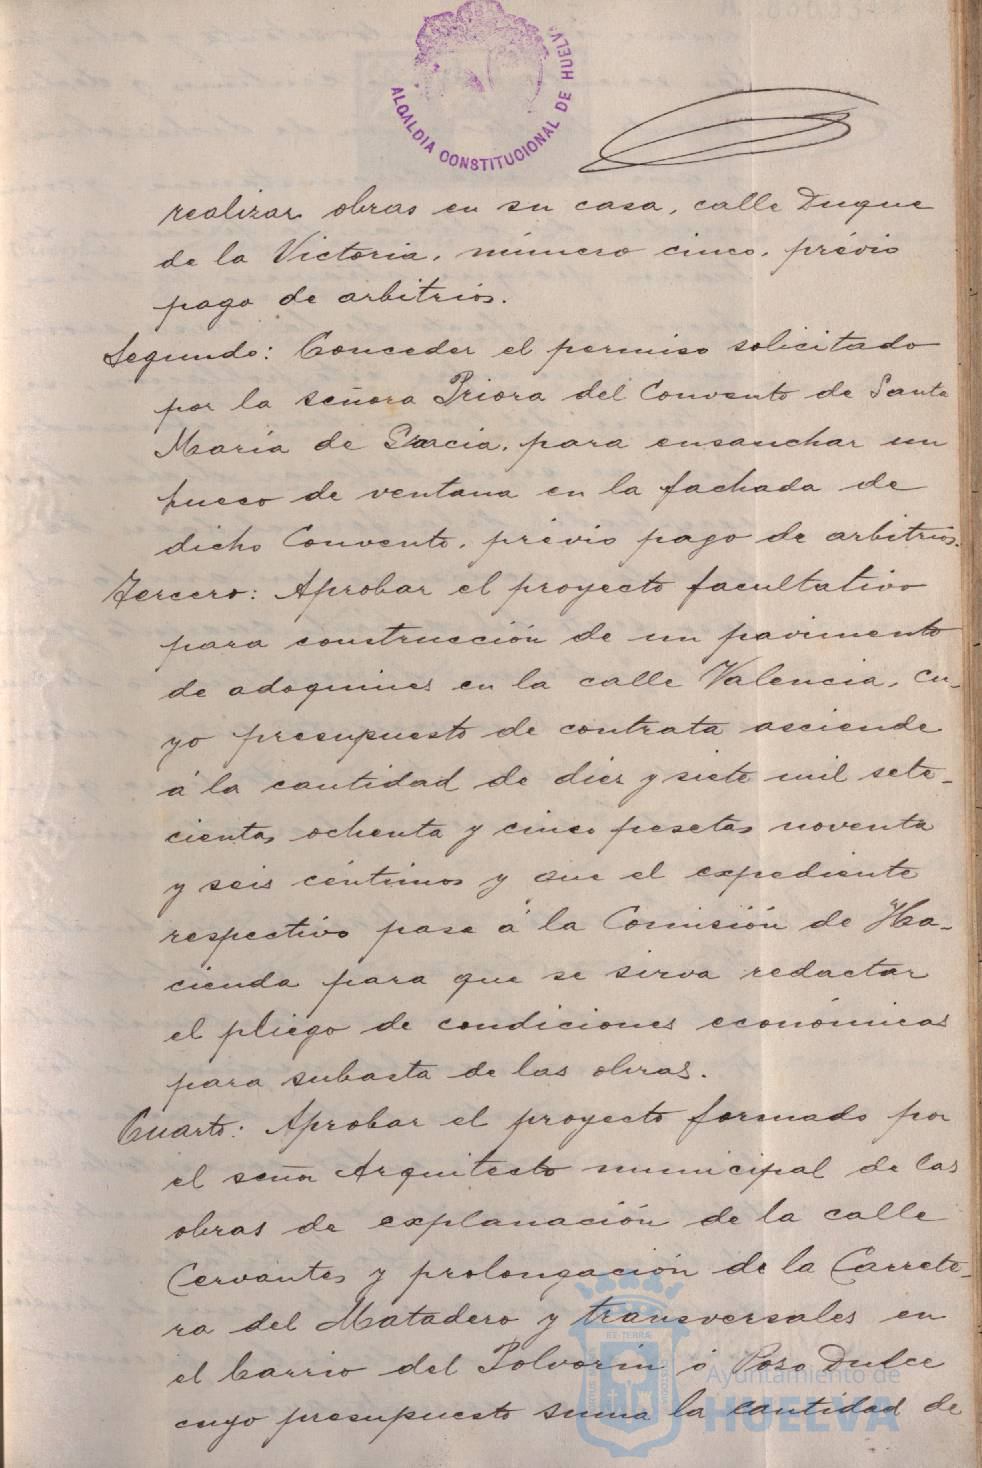 ALCALDIA CONSTITUCIONAL DE HUELV
realizar obras en su casa, calle Duque
de la Victoria, número cinco, prévio
pago de arbitrios.
Segundo: Conceder el permiso solicitado
por la señora Priora del Convento de Santa
María de Gracia, para ensanchar un
hueco de ventana en la fachada de
dicho Convento, prévio pago de arbitrios.
Tercero: Aprobar el proyecto facultativo
para construcción de un pavimento
de adoquines en la calle Valencia, cu-
yo presupuesto de contrata asciende
á la cantidad de diez y siete mil sete-
cientas ochenta y cinco pesetas noventa
y seis céntimos y que el expediente
respectivo pase á la Comisión de Ha-
cienda para que se sirva redactar
el pliego de condiciones económicas
para subasta de las obras.
Cuarto: Aprobar el proyecto formado por
el señor Arquitecto municipal de las
obras de explanación de la calle
Cervantes y prolongación de la Carrete-
ra del Matadero y transversales en
el barrio del Polvorín ó Poso Dulce
cuyo presupuesto suma la cantidad de
Ayuntamiento de
HUELVA